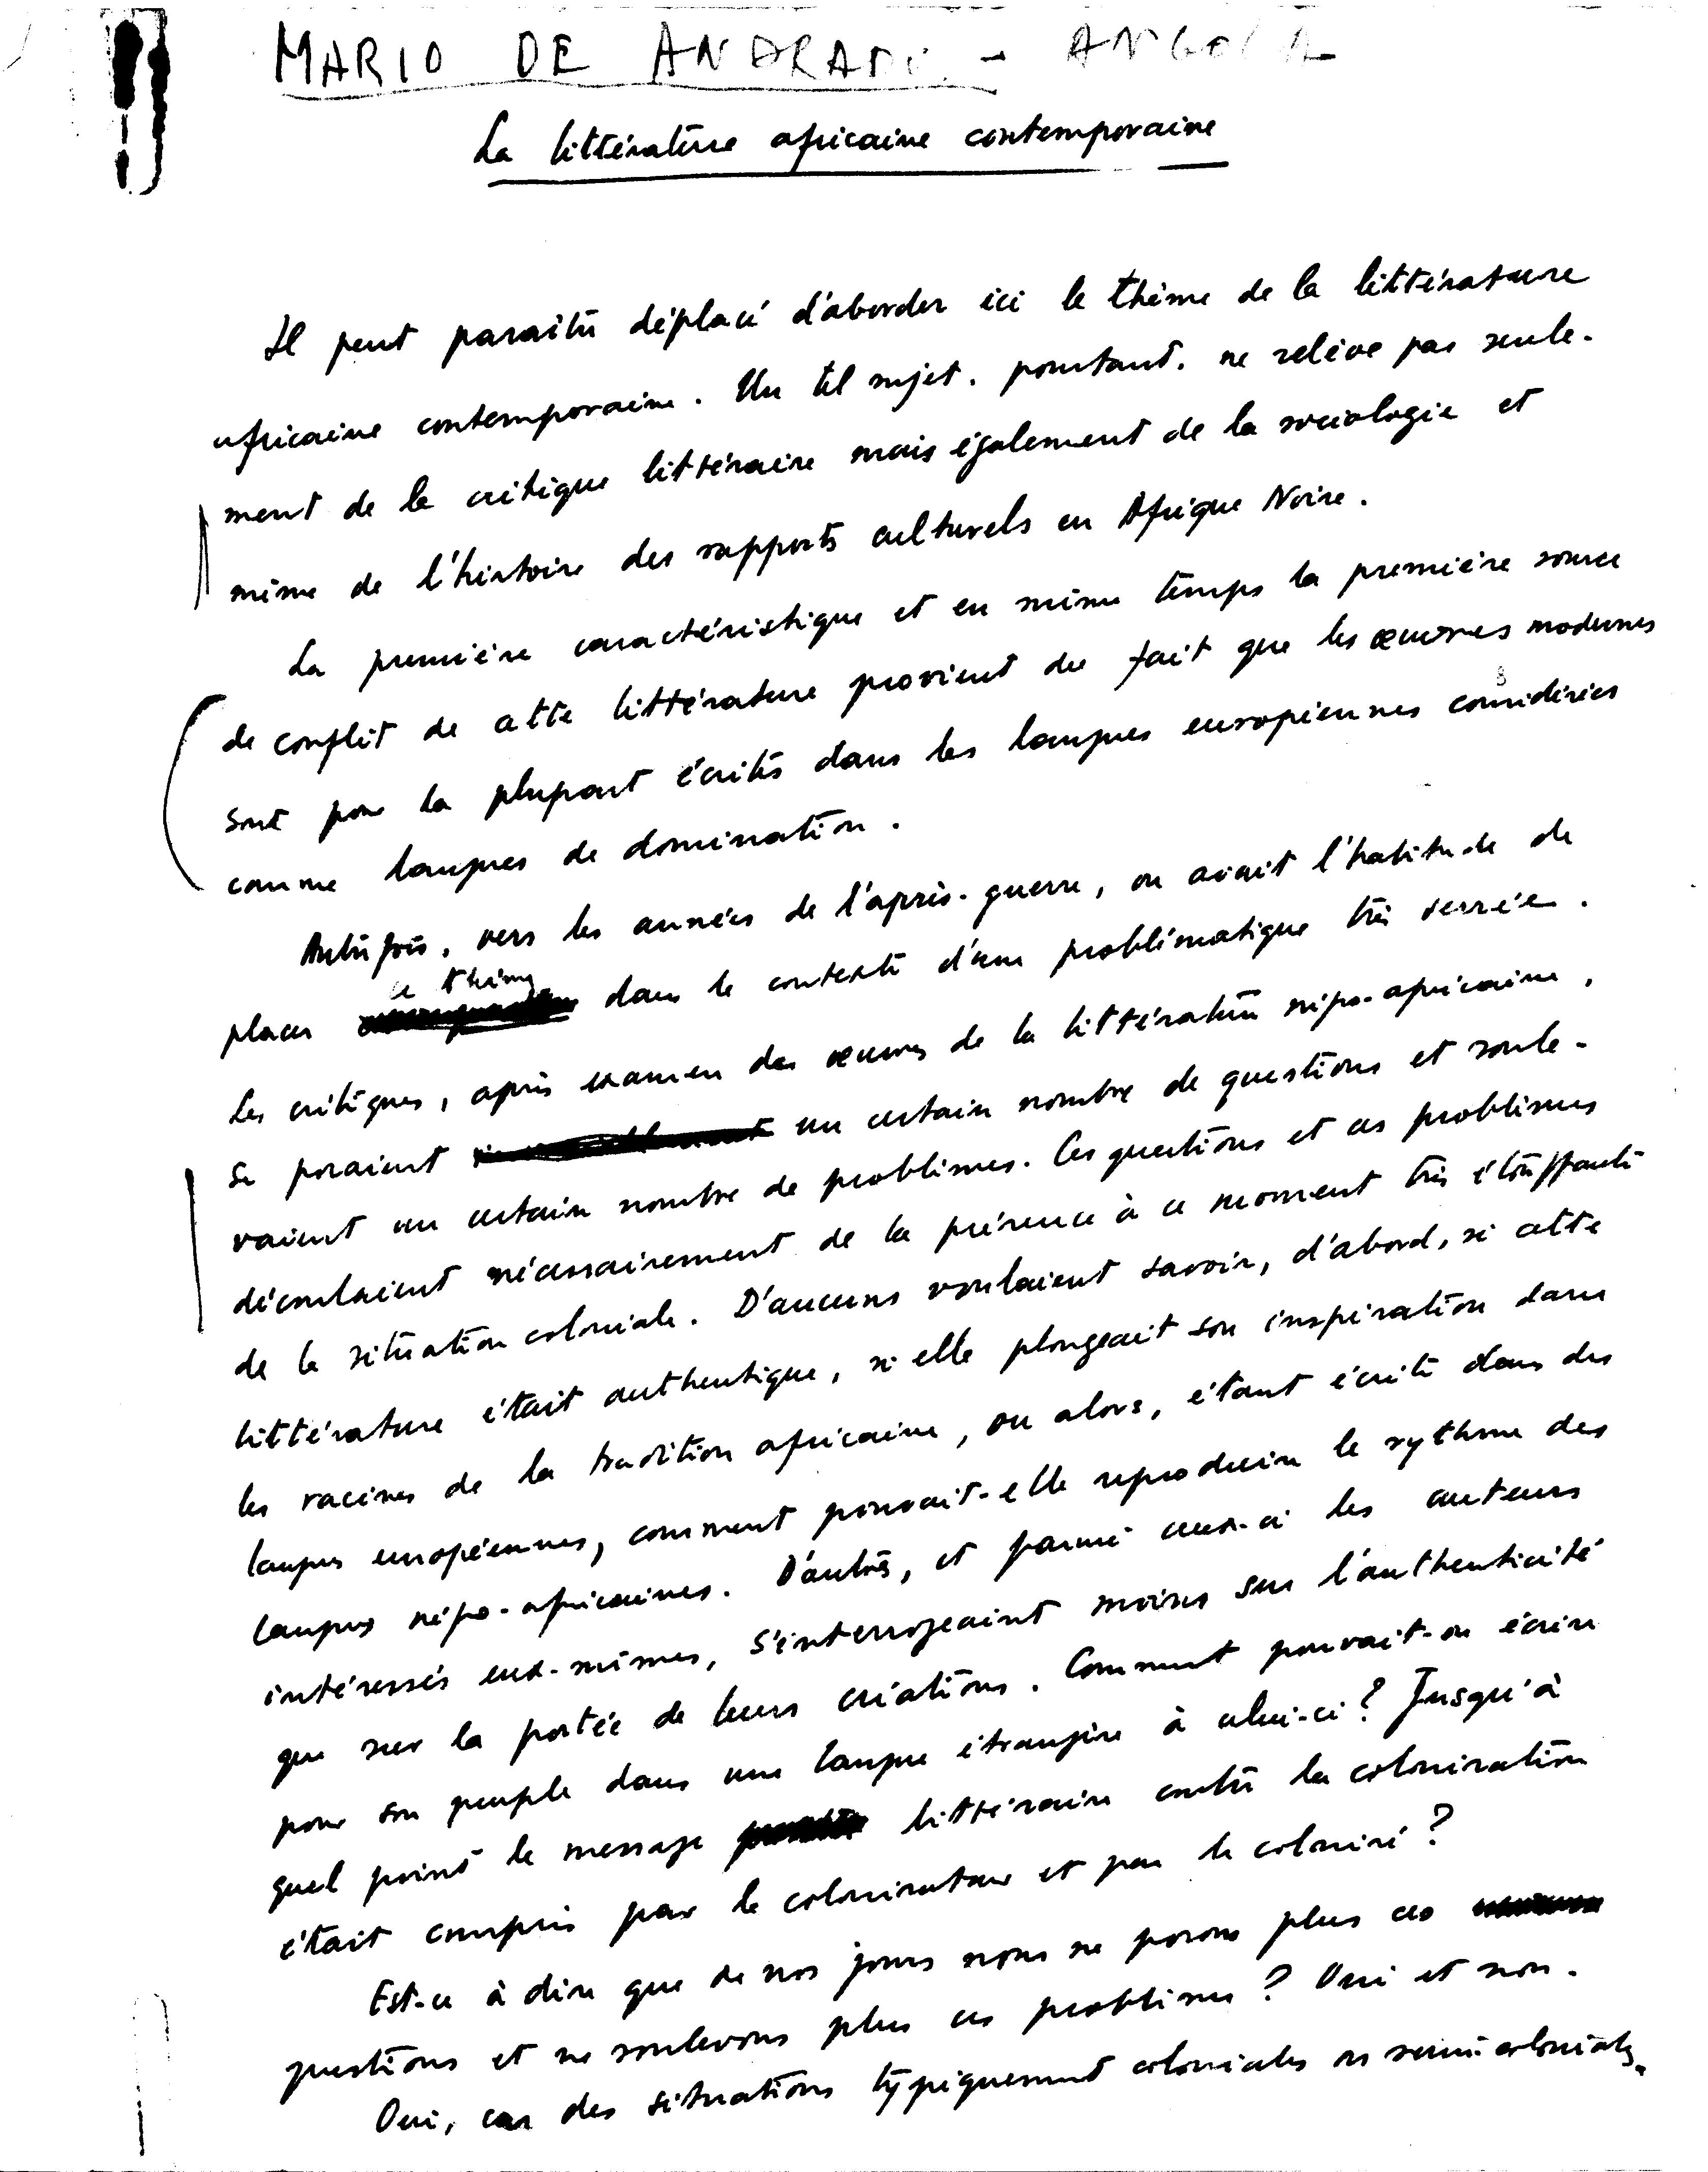 MARIO DE ANDRADE - ANGOLA
La littérature africaine contemporaine
Il peut paraître déplacé d'aborder ici le thème de la littérature
africaine contemporaine. Un tel sujet, pourtant, ne relève pas seule-
ment de la critique littéraire mais également de la sociologie et
même de l'histoire des rapports culturels en Afrique Noire.
La première caractéristique et en même temps la première source
de conflit de cette littérature provient du fait que les œuvres modernes
sont pour la plupart écrites dans les langues européennes considérées
comme langues de domination.
Autrefois, vers les années de l'après-guerre, on avait l'habitude de
ce thème
placer dans le contexte d'une problématique très serrée.
Les critiques, après examen des œuvres de la littérature négro-africaine,
se posaient un certain nombre de questions et soule-
vaient un certain nombre de problèmes. Ces questions et ces problèmes
découlaient nécessairement de la présence à ce moment très étouffante
de la situation coloniale. D'aucuns voulaient savoir, d'abord, si cette
littérature était authentique, si elle plongeait son inspiration dans
les racines de la tradition africaine, ou alors, étant écrite dans des
langues européennes, comment pouvait-elle reproduire le rythme des
langues négro-africaines. D'autres, et parmi ceux-ci les auteurs
intéressés eux-mêmes, s'interrogeaint moins sur l'authenticité
que sur la portée de leurs créations. Comment pouvait-on écrire
pour son peuple dans une langue étrangère à celui-ci ? Jusqu'à
quel point le message littéraire contre la colonisation
était compris par le colonisateur et par le colonisé ?
Est-ce à dire que de nos jours nous ne posons plus ces
questions et ne soulevons plus ces problèmes ? Oui et non.
Oui, car des situations typiquement coloniales ou semi-coloniales